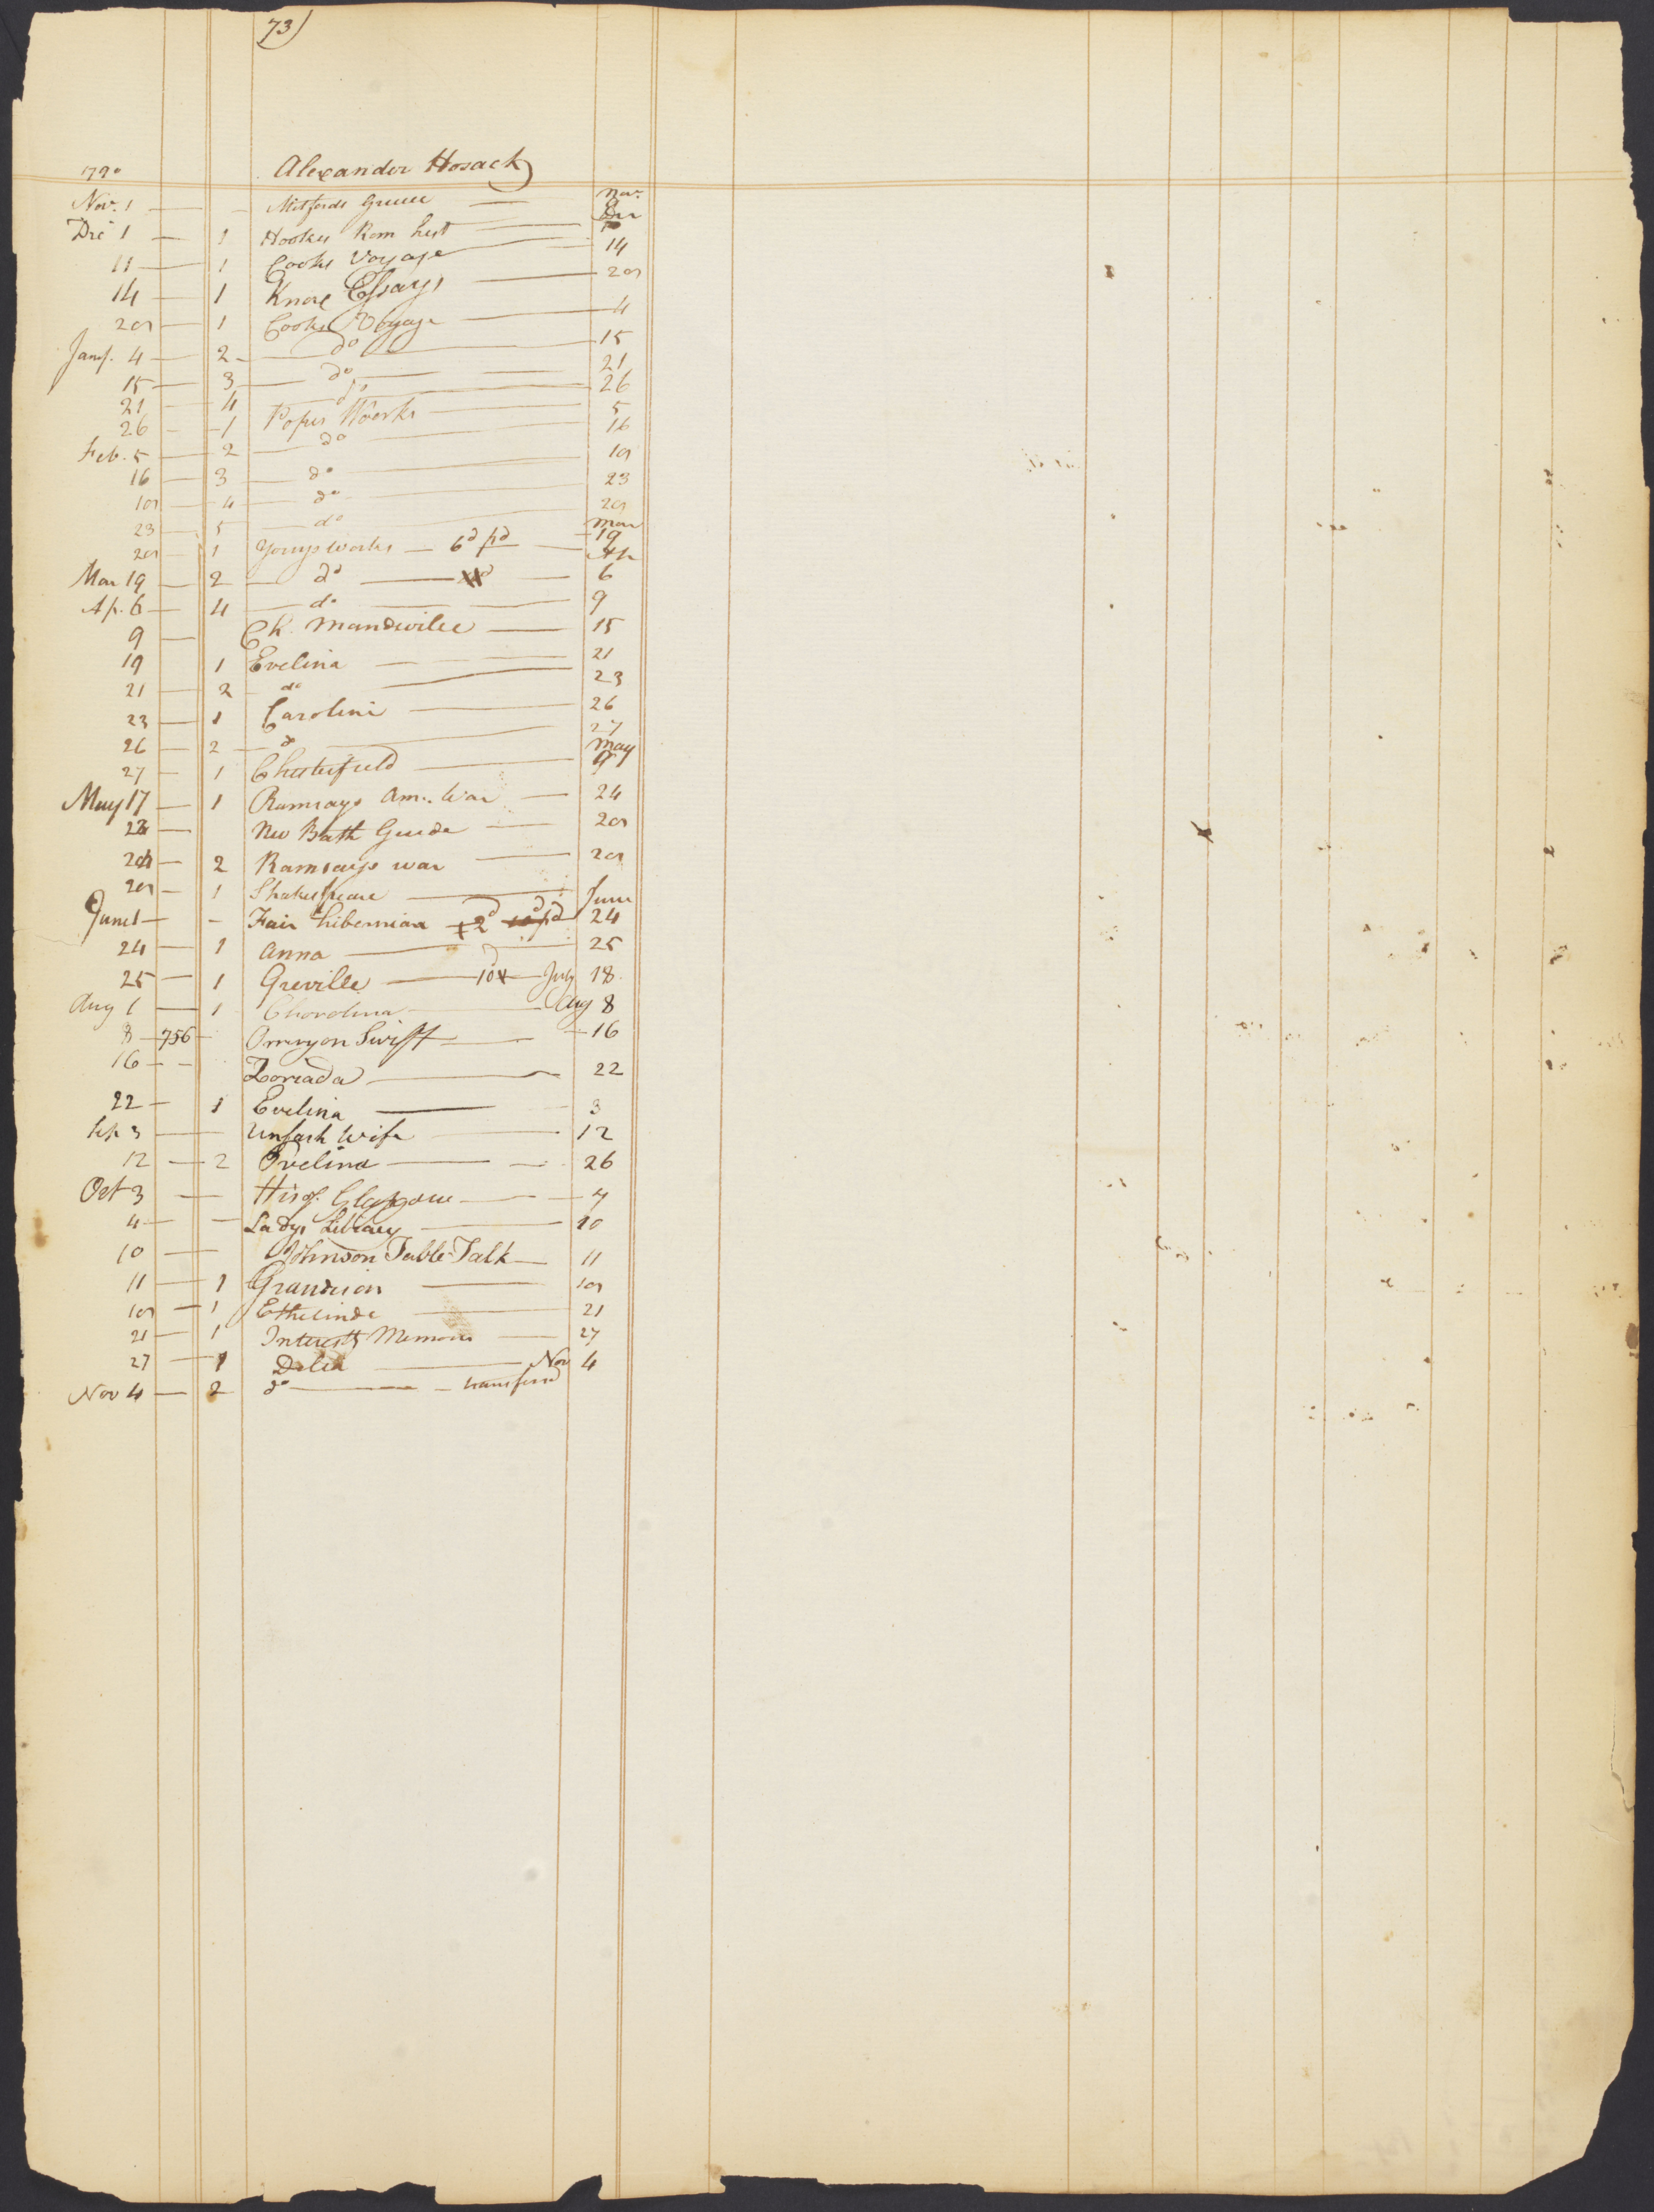 73)
1790 Alexander Hosack
Nov. 1 — — Mitfords Greece — Nov.
Dec 1 — 1 Hookes Rom hist — Dec
11 — 1 Cooks Voyage — 14
14 — 1 Knox Essays — 28
28 — 1 Cooks Voyage — 4
Jany. 4 — 2 — do — 15
15 — 3 — do — 21
21 — 4 — do — 26
26 — 1 Popes Works — 5
Feb. 5 — 2 — do — 16
16 — 3 — do — 18
18 — 4 — do — 23
23 — 5 — do — 28
28 — 1 Youngs works — 6d pd — Mar 19
Mar 19 — 2 — do — Ap 6
Ap. 6 — 4 — do — 9
9 — Ck. Mandevilee — 15
19 1 Evelina — 21
21 — 2 — do — 23
23 — 1 Caroline — 26
26 — 2 — do — 27
27 — 1 Chesterfield — May 9
May 17 — 1 Ramsays Am. War — 24
New Bath Guide — 28
28 — 2 Ramsays war — 28
28 — 1 Shakespeare — June
June 1 — - Fair hibernian +2d 24
24 — 1 Anna — 25
25 — 1 Greville — 10d — July 18
Aug 1 — 1 Charolina — Aug 8
8 — 756 - Orrery on Swift — 16
16 - - Zoriada — 22
22 — 1 Evelina — 3
Sep 3 — Unfash Wife — 12
12 — 2 Evelina — 26
Oct 3 — Hisy. Glasgow — 4
4 — — Ladys Library — 10
10 — Johnson Table-Talk — 11
11 — 1 Grandison — 18
18 — 1 Ethelinde — 21
21 — 1 Interestg Memoirs — 27
27 — 1 Delia — Nov 4
Nov 4 — 2 do — transferrd